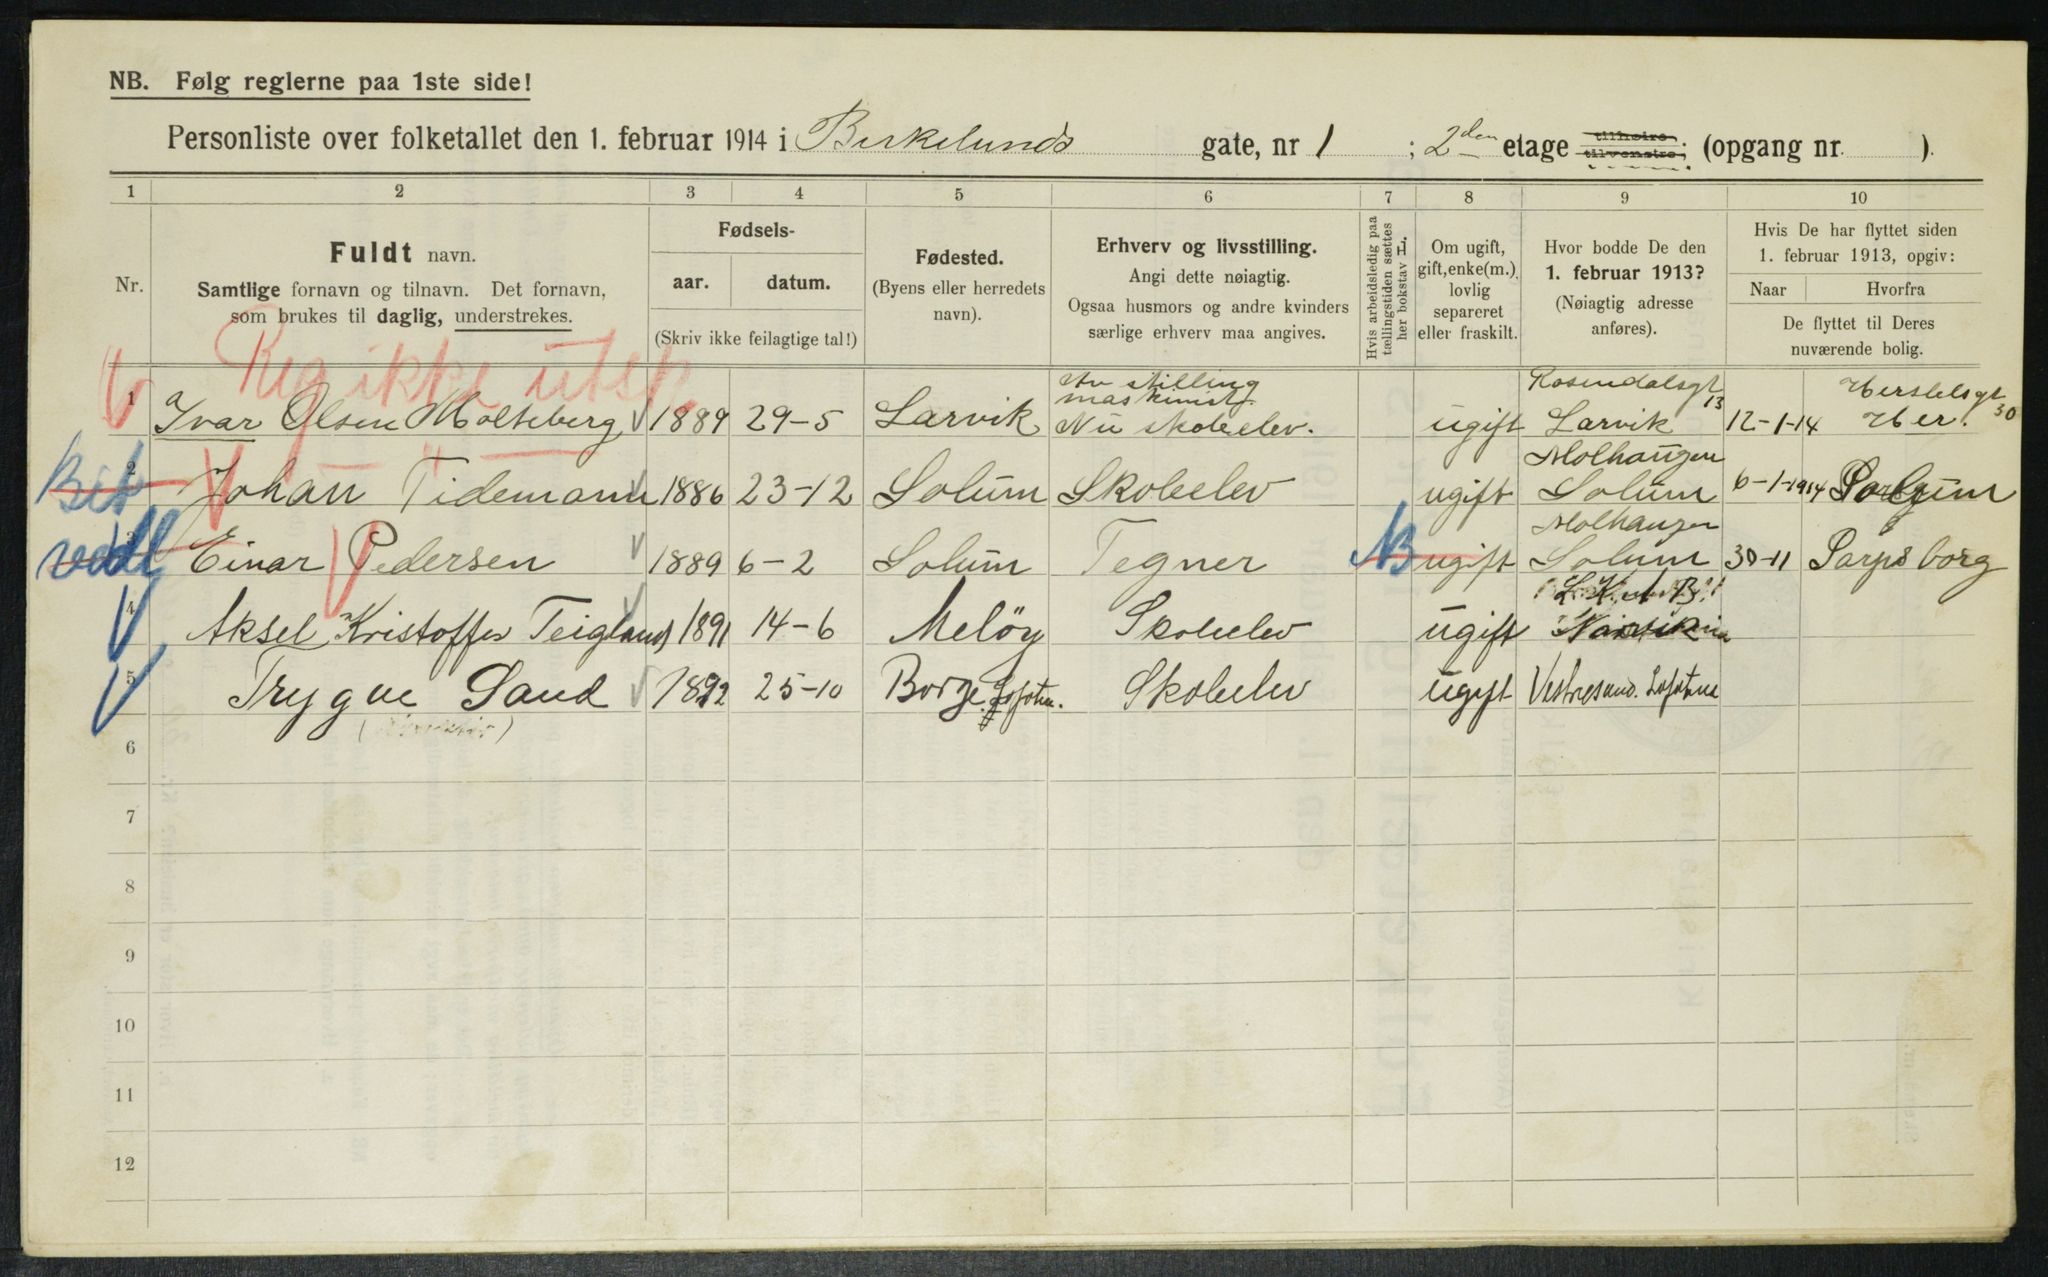 NB. Følg reglerne paa 1ste side!
Personliste over folketallet den 1. februar 1914 i Birkelunds gate, nr 1 ; 2den etage tilhøire tilvenstre; (opgang nr. ).
1 2 3 4 5 6 7 8 9 10
Nr.
Fuldt navn.
Samtlige fornavn og tilnavn. Det fornavn,
som brukes til daglig, understrekes.
Fødsels-
aar. datum.
(Skriv ikke feilagtige tal!)
Fødested.
(Byens eller herredets
navn).
Erhverv og livsstilling.
Angi dette nøiagtig.
Ogsaa husmors og andre kvinders
særlige erhverv maa angives.
Hvis arbeidsledig paa
tællingstiden sættes
her bokstav L.
Om ugift,
gift, enke(m.),
lovlig
separeret
eller fraskilt.
Hvor bodde De den
1. februar 1913?
(Nøiagtig adresse
anføres).
Hvis De har flyttet siden
1. februar 1913, opgiv:
Naar Hvorfra
De flyttet til Deres
nuværende bolig.
Reg ikke utsk
Av stilling Rosendalsgt 13
maskinist.
1 Ivar Olsen Molteberg 1889 29-5 Larvik Nu skoleelev. ugift Larvik 12-1-14 Her. 30
Molhaugen
2 Johan Tidemann 1886 23-12 Solum Skoleelev ugift Solum 6-1-1914
Molhaugen
3 Einar Pedersen 1889 6-2 Solum Tegner ugift Solum 30-11 Sarpsborg
4 Aksel Kristoffer Teigland 1891 14-6 Meløy Skoleelev ugift
5 Trygve Sand 1892 25-10 Borge Lofoten. Skoleelev ugift Vestresand. Lofotene
6
7
8
9
10
11
12